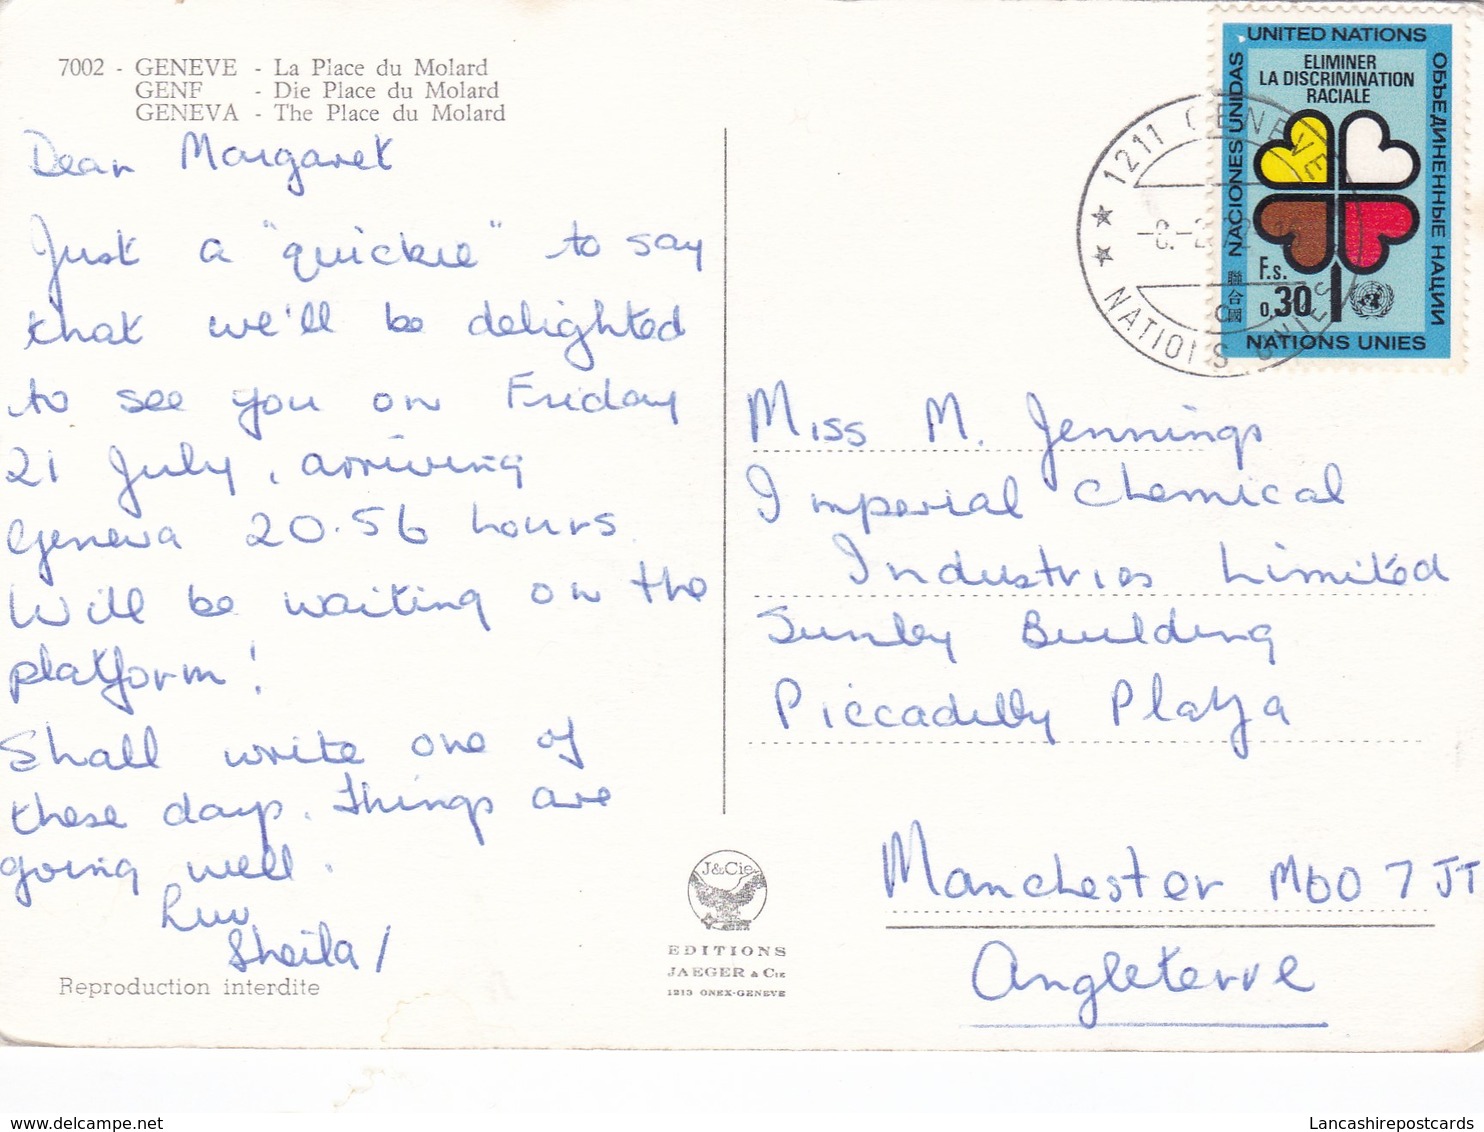 7002 - GENEVE - La Place du Molard
GENF - Die Place du Molard
GENEVA - The Place du Molard
Dear Margaret
Just a "quickie" to say
that we'll be delighted
to see you on Friday
21 July, arriving
Geneva 20.56 hours.
Will be waiting on the
platform!
Shall write one of
these days. Things are
going well.
Luv
Sheila/
Reproduction interdite
J&Cie
EDITIONS
JAEGER & Cie
1213 ONEX-GENEVE
UNITED NATIONS
ELIMINER
LA DISCRIMINATION
RACIALE
NACIONES UNIDAS
ОБЪЕДИНЕННЫЕ НАЦИИ
聯合國
F.s.
0,30
NATIONS UNIES
1211 GENEVE
NATIONS UNIES
Miss M. Jennings
Imperial Chemical
Industries Limited
Sunley Building
Piccadilly Plaza
Manchester M60 7JT
Angleterre
Lancashirepostcards